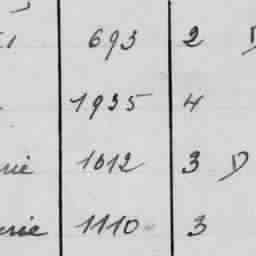 693 2
1935 4
rie 1012 3 D
rie 1110 3